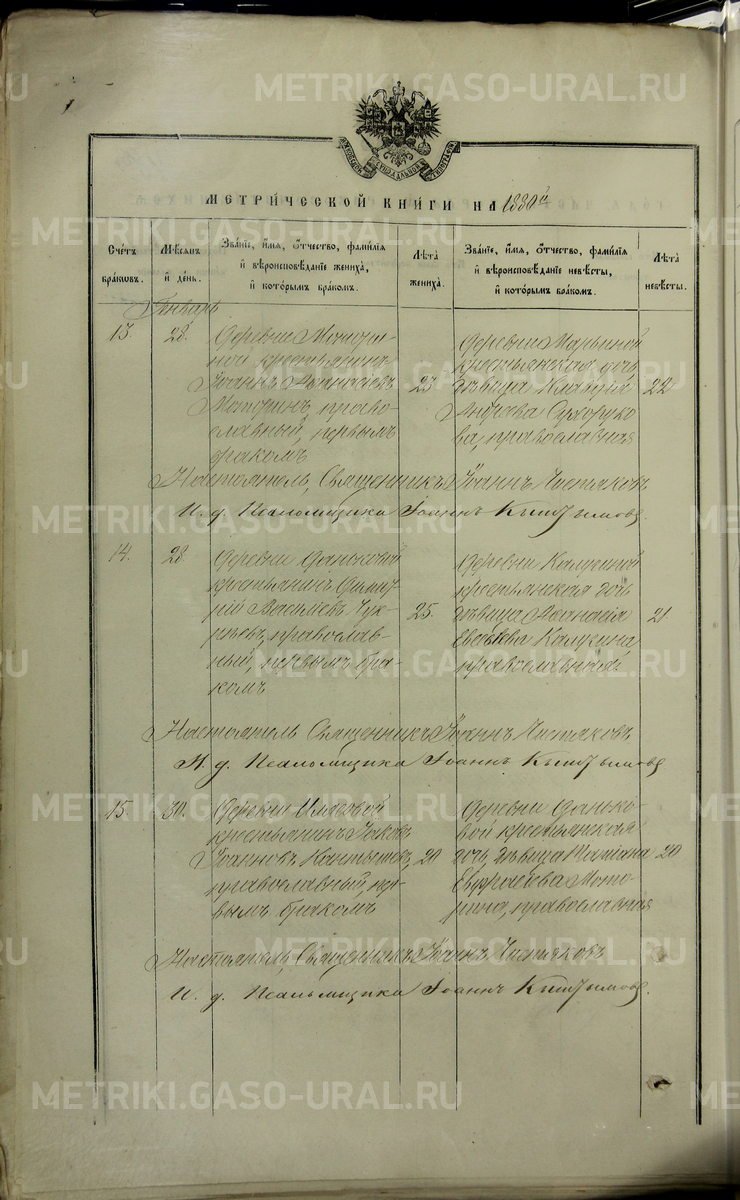 METRIKI.GASO-URAL.RU
МЕТРИЧЕСКОЙ КНИГИ НА 1880 й
Счетъ браковъ.
Мѣсяцъ и день.
Званіе, имя, отчество, фамилія и вѣроисповѣданіе жениха, и которымъ бракомъ.
Лѣта жениха.
Званіе, имя, отчество, фамилія и вѣроисповѣданіе невѣсты, и которымъ бракомъ.
Лѣта невѣсты.
Январь
13. 28.
Деревни
ной крестьянинъ
Іоаннъ
православный, первымъ
бракомъ
23
Деревни Марьиной
крестьянская дочь
дѣвица Клавдія
Андреева Сухоруко
ва, православная
22
Настоятель, Священникъ Іоаннъ Чистяковъ
И. д. Псаломщика Іоаннъ Кыштымовъ.
14. 28.
Деревни Даньковой
крестьянинъ Димит
рій Васильевъ Чук
реевъ, православ
ный, первымъ бра
комъ
25.
Деревни Калугиной
крестьянская дочь
дѣвица Аѳанасія
Калугина
православная
21.
Настоятель Священникъ Іоаннъ Чистяковъ
И. д. Псаломщика Іоаннъ Кыштымовъ
15. 30.
Деревни
крестьянинъ Іаковъ
Іоанновъ
православный, пер
вымъ бракомъ
20
Деревни Дань­ко
вой крестьянская
дочь, дѣвица Татіана
Мото
рина, православная
20
Настоятель, Священникъ Іоаннъ Чистяковъ
И. д. Псаломщика Іоаннъ Кыштымовъ.